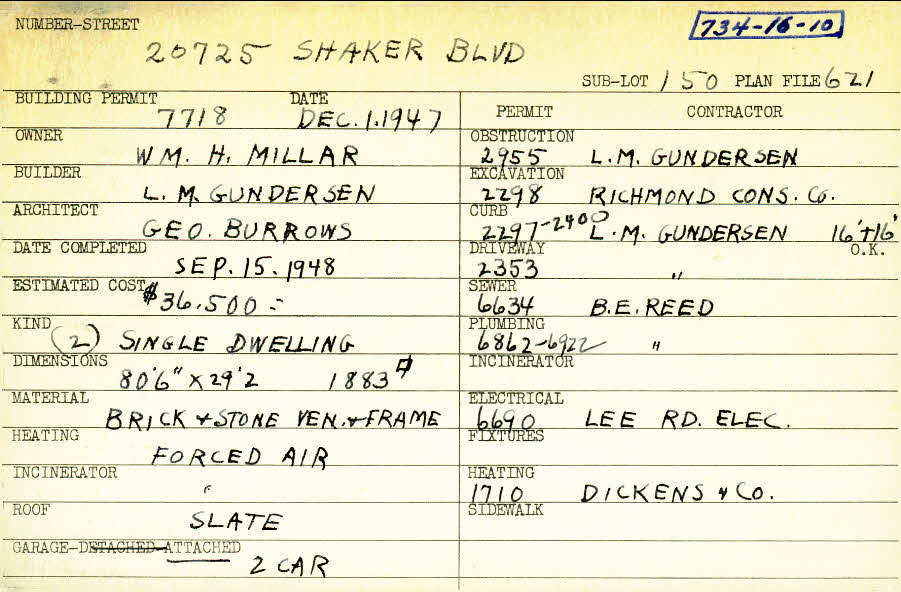 NUMBER-STREET
734-16-10
20725 SHAKER BLVD
SUB-LOT 150 PLAN FILE 621
BUILDING PERMIT DATE
7718 DEC. 1. 1947
OWNER
WM. H. MILLAR
BUILDER
L. M. GUNDERSEN
ARCHITECT
GEO. BURROWS
DATE COMPLETED
SEP. 15. 1948
ESTIMATED COST
$36.500 =
KIND
(2) SINGLE DWELLING
DIMENSIONS
80'6" X 29'2 1883
MATERIAL
BRICK & STONE VEN. & FRAME
HEATING
FORCED AIR
INCINERATOR
ROOF
SLATE
GARAGE-DETACHED-ATTACHED
2 CAR
PERMIT CONTRACTOR
OBSTRUCTION
2955 L. M. GUNDERSEN
EXCAVATION
2298 RICHMOND CONS. Co.
CURB
2297-2400 L. M. GUNDERSEN 16'+16'
O.K.
DRIVEWAY
2353 "
SEWER
6634 B. E. REED
PLUMBING
6862-6922 "
INCINERATOR
ELECTRICAL
6690 LEE RD. ELEC.
FIXTURES
HEATING
1710 DICKENS & Co.
SIDEWALK